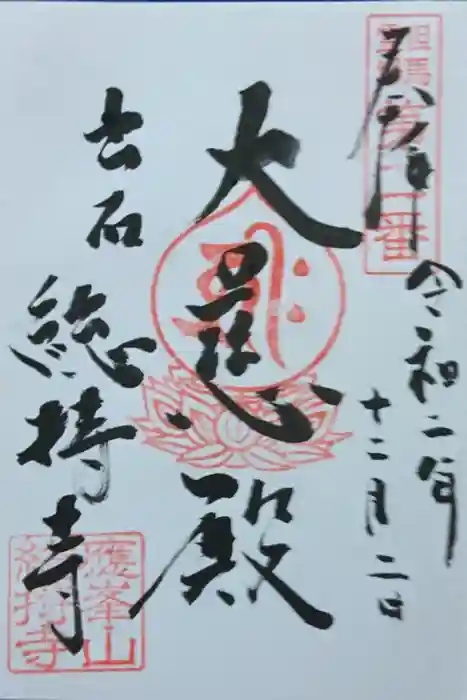 奉拝
令和二年
十二月二日
大悲殿
出石
総持寺
應峯山
総持寺